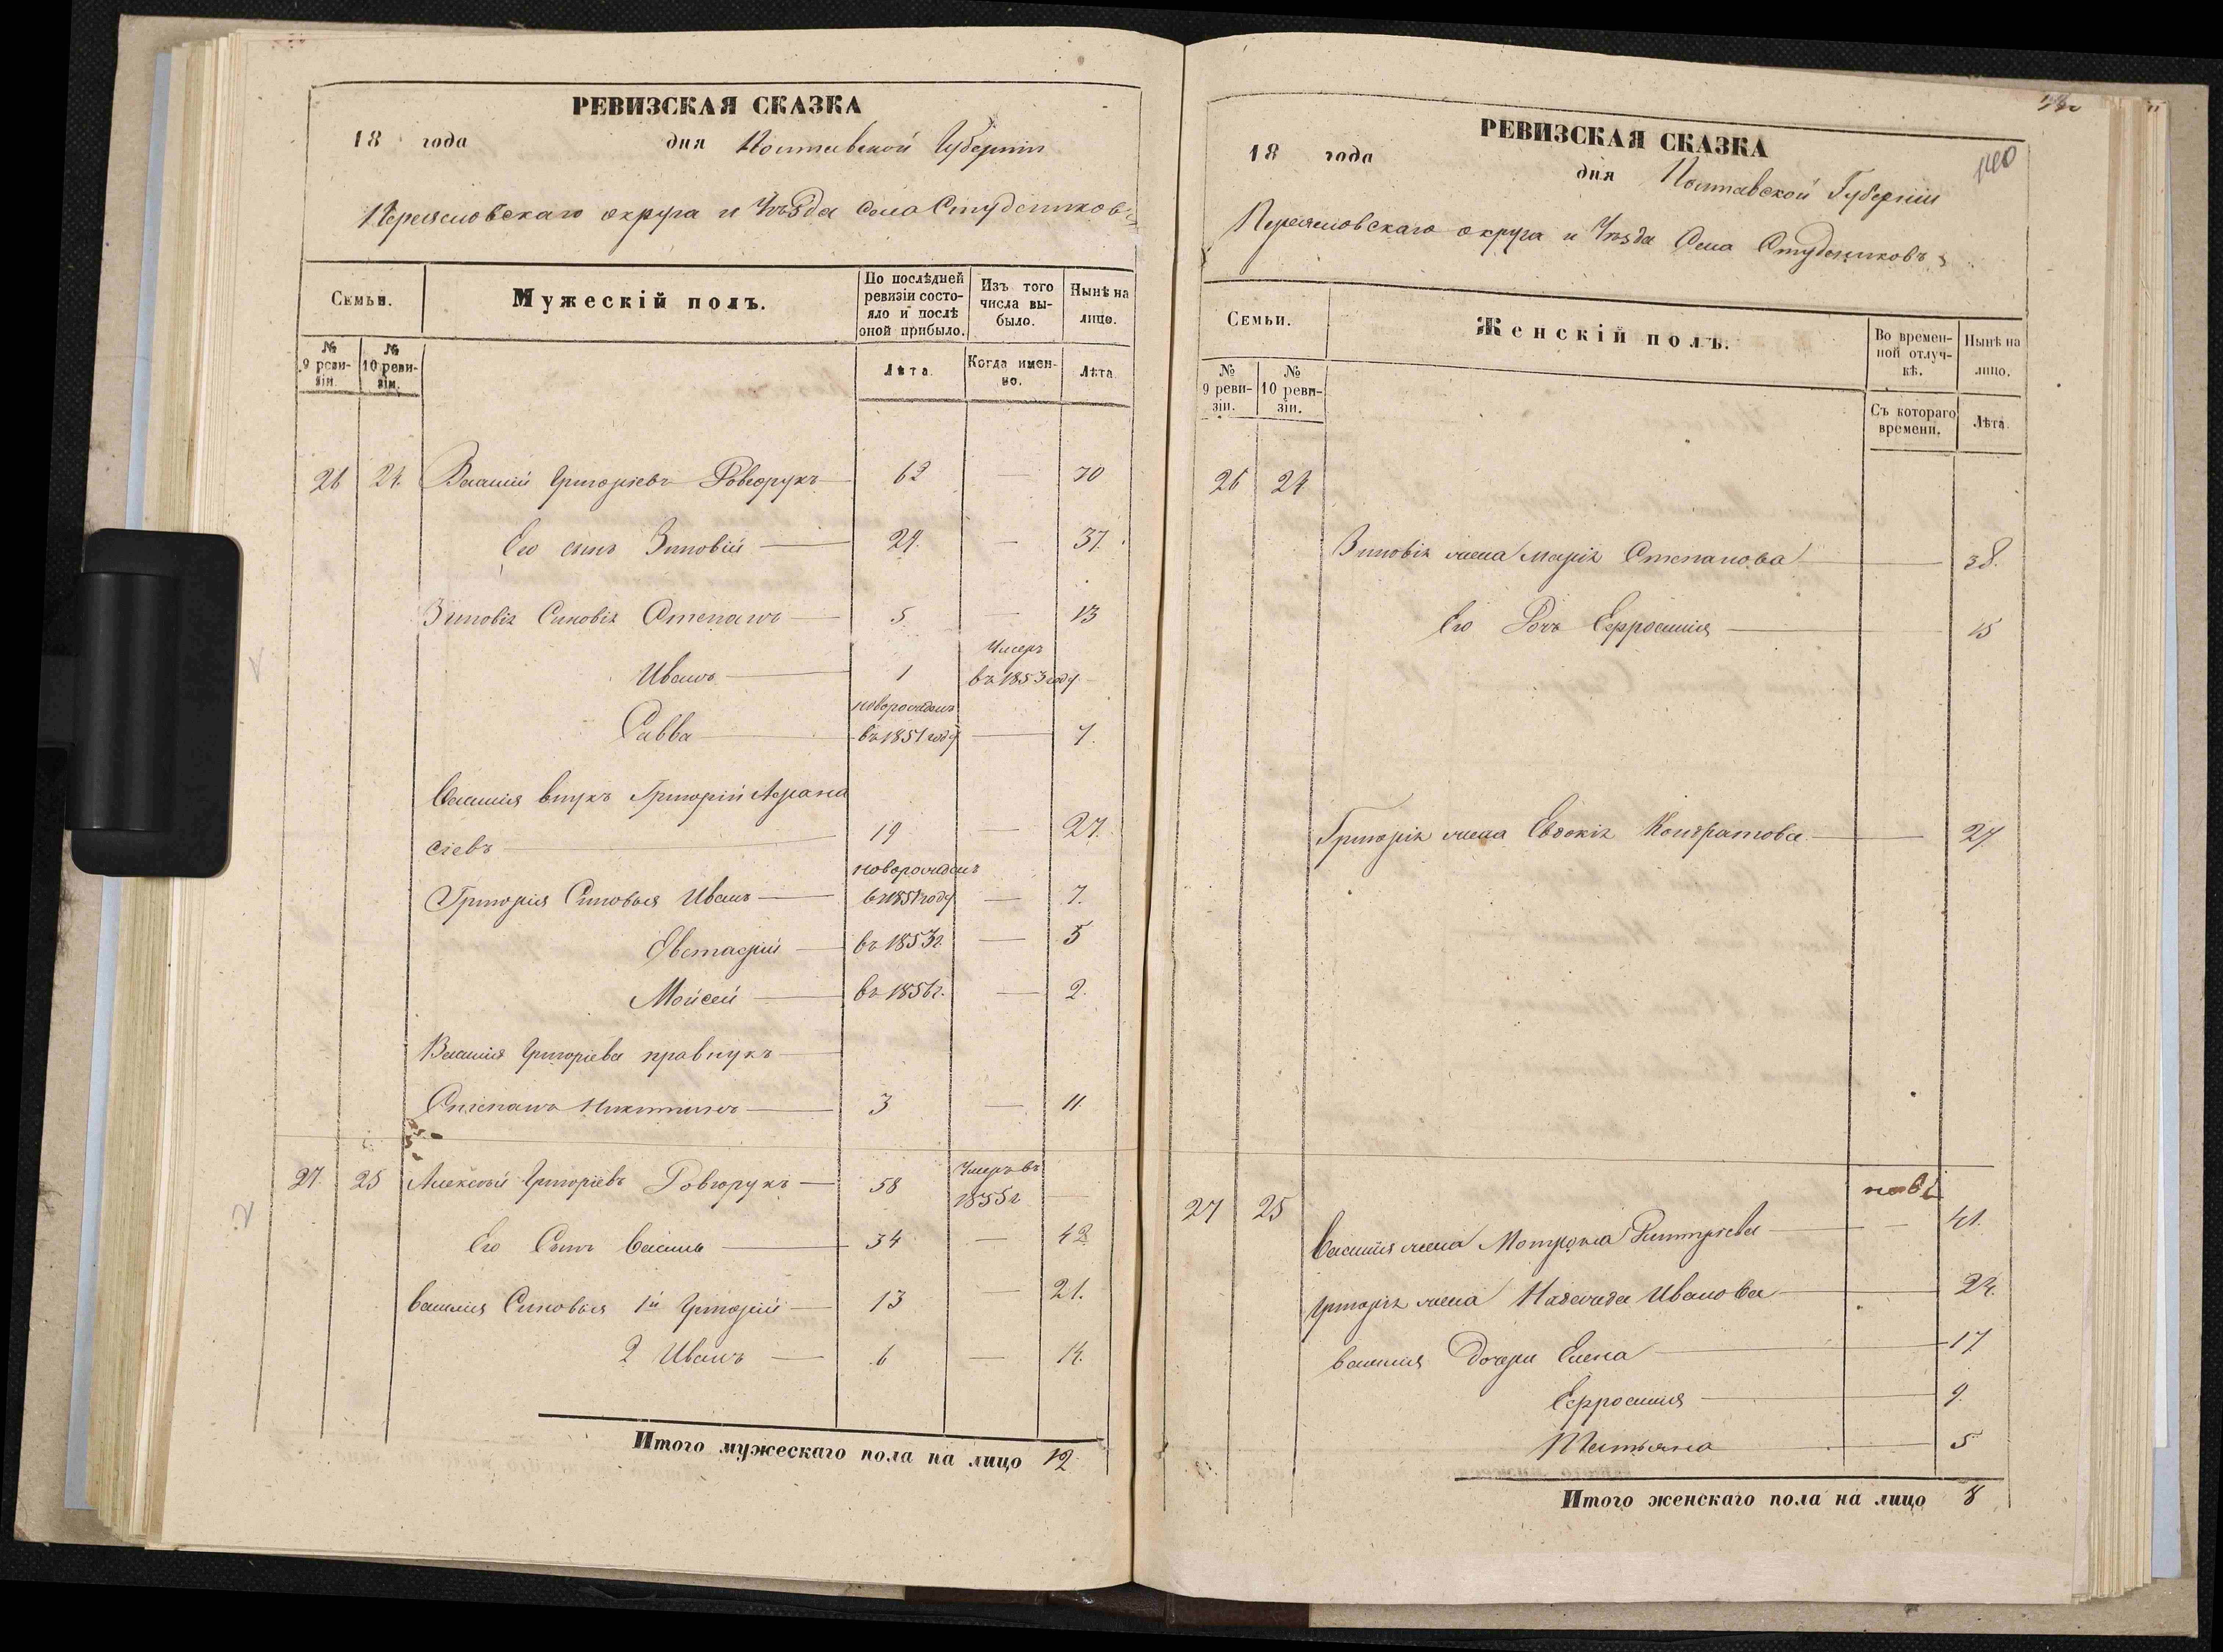 РЕВИЗСКАЯ СКАЗКА
18 года дня Полтавской Губерніи
Переясловскаго округа и Уѣзда Села Студениковъ
Семьи.
Мужескій полъ.
По послѣдней ревизіи состояло и послѣ оной прибыло.
Изъ того числа выбыло.
Нынѣ на лицо.
№ 9 ревизіи.
№ 10 ревизіи.
Лѣта.
Когда именно.
Лѣта.
26 24. Василій Григоріевъ 62 — 70
Его сынъ Зиновій — 29. — 37.
Зиновія Сыновія Степанъ — 5 — 13
Умеръ
Иванъ — 1 въ 1853 году
новорожденъ
Савва — въ 1851 году — 7.
Василія внукъ Григорій Афана
сіевъ — 19 — 27.
новорожденъ
Григорія Сыновья Иванъ — въ 1851 году — 7.
Евстафій — въ 1853г. — 5
Мойсей — въ 1856г. — 2.
Василія Григоріева правнукъ —
Степанъ Никитинъ — 3 — 11.
27. 25 Алексѣй Григоріевъ — 58 Умеръ въ
1855г —
Его Сынъ Василь — 34 — 42
Василія Сыновья 1й Григорій — 13 — 21.
2 Иванъ — 6 — 14.
Итого мужескаго пола на лицо 12
140
РЕВИЗСКАЯ СКАЗКА
18 года дня Полтавской Губерніи
Переясловскаго округа и Уѣзда Села Студениковъ
Семьи.
Женскій полъ.
Во временной отлучкѣ.
Нынѣ на лицо.
№ 9 ревизіи.
№ 10 ревизіи.
Съ котораго времени.
Лѣта.
26 24
Зиновія жена Марія Степанова — 38.
Его Дочь Ефросинія — 15
Григорія жена Евдокія Кондратова — 27
27 25
Василія жена Мотрона Димтріева — 41.
Григорія жена Надежда Иванова — 24.
Василія Дочери Елена — 17
Ефросинія — 9.
Татьяна — 5
Итого женскаго пола на лицо 8